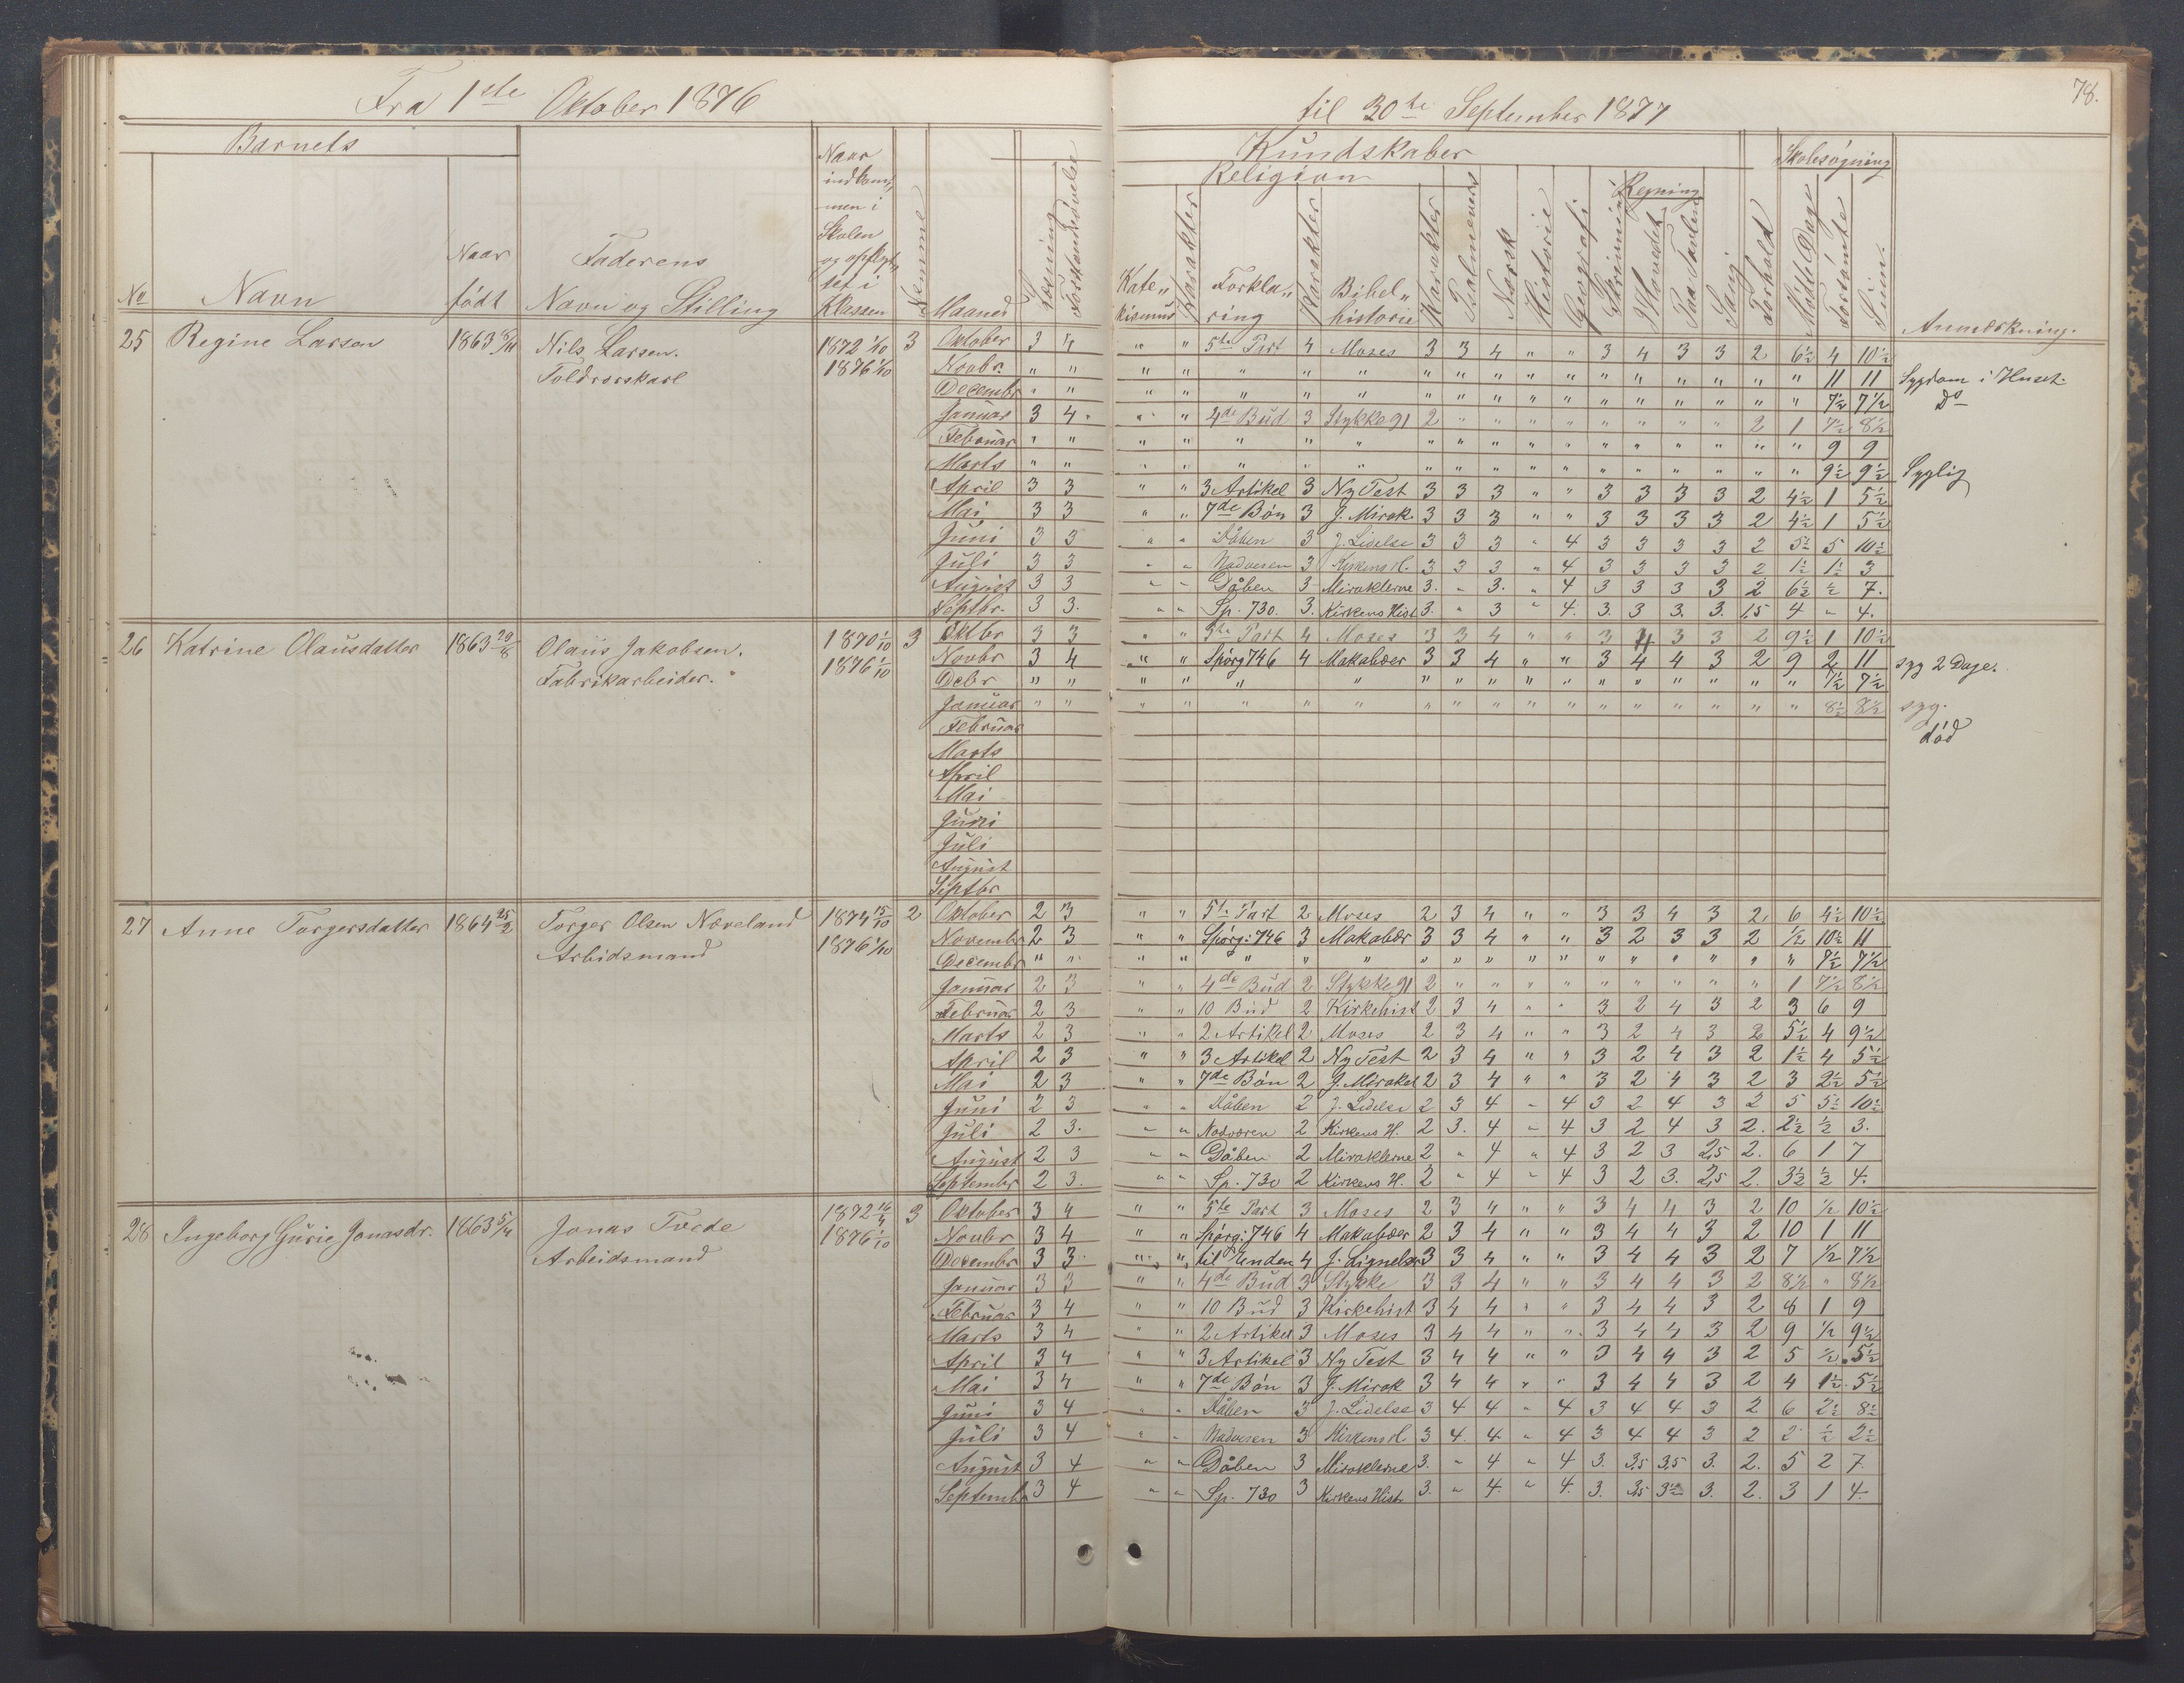 Fra 1ste Oktober 1876 til 30te September 1877
78.
Barnets Kundskaber Skolesøgning
Religion Regning
No Navn Naar født Faderens Navn og Stilling Naar indkommen i Skolen og opflyttet i Klassen Nemme Maaned Læsning Forstandsøvelse Kate„kismus Karakter Forkla„ring Karakter Bibel„historie Karakter Psalmevers Norsk Historie Geografi Skrivning I Hovedet Paa Tavlen Sang Forhold Mødte Dage Forsømte Sum. Anmærkning.
25 Regine Larsen 1863 Nils Larsen. 1872 1/10 3 Oktober 3 4 " " 5te Part 4 Moses 3 3 4 " " 3 4 3 3 2 6½ 4 10½
Toldrorskarl 1876 1/10 Novbr. " " " " " " " " " " " " " " " " " " 11 11 Sygdom i Huset.
Decembr " " " " " " " " " " " " " " " " " " 7½ 7½ Do
Januar 3 4 " " 4de Bud 3 Stykke 91 2 " " " " " " " " 2 1 7½ 8½
Februar " " " " " " " " " " " " " " " " " " 9 9
Marts " " " " " " " " " " " " " " " " " " 9½ 9½ Syglig
April 3 3 " " 3 Artikel 3 Ny Test 3 3 3 " " 3 3 3 3 2 4½ 1 5½
Mai 3 3 " " 7de Bøn 3 J. Mirak. 3 3 3 " " 3 3 3 3 2 4½ 1 5½
Juni 3 3 " " Dåben 3 J. Lidelse 3 3 3 " 4 3 3 3 3 2 5½ 5 10½
Juli 3 3 " " Nadveren 3 Kirkens H. 3 3 3 " 4 3 3 3 3 2 1½ 1½ 3
August 3 3 " " Dåben 3 Miraklerne 3. " 3. " 4 3 3 3 3 2 6½ ½ 7.
Septbr. 3 3. " " Sp. 730. 3. Kirkens Hist 3. " 3 " 4. 3. 3 3. 3. 1,5 4 " 4.
26 Katrine Olausdatter 1863 29/8 Olaus Jakobsen. 1870 1/10 3 Oktbr 3 3 " " 5te Part 4 Moses 3 3 4 " " 3 4 3 3 2 9½ 1 10½
Fabrikarbeider. 1876 1/10 Novbr 3 4 " " Spørg 746 4 Makabæer 3 3 4 " " 3 4 4 3 2 9 2 11 syg 2 Dage.
Decbr " " " " " " " " " " " " " " " " " " 7½ 7½
Januar " " " " " " " " " " " " " " " " " " 8½ 8½ syg.
Februar død
Marts
April
Mai
Juni
Juli
August
Septbr
27 Anne Torgersdatter 1864 25/2 Torger Olsen Næveland 1874 15/10 2 Oktober 2 3 " " 5te Part 2 Moses 2 3 4 " " 3 3 4 3 2 6 4½ 10½
Arbidsmand 1876 1/10 Novembr 2 3 " " Spørg: 746 3 Makabær 3 3 4 " " 3 2 3 3 2 ½ 10½ 11
Decembr " " " " " " " " " " " " " " " " " " 7½ 7½
Januar 2 3 " " 4de Bud 2 Stykke 91 2 " " " " " " " " " 1 7½ 8½
Februar 2 3 " " 10 Bud 2 Kirkehist 2 3 4 " " 3 2 4 3 2 3 6 9
Marts 2 3 " " 2 Artikel 2 Moses 2 3 4 " " 3 2 4 3 2 5½ 4 9½
April 2 3 " " 3 Artikel 2 Ny Test 2 3 4 " " 3 2 4 3 2 1½ 4 5½
Mai 2 3 " " 7de Bøn 2 J. Mirakel 2 3 4 " " 3 2 4 3 2 3 2½ 5½
Juni 2 3 " " Dåben 2 J. Lidelse 2 3 4 " 4 3 2 4 3 2 5 5½ 10½
Juli 2 3. " " Nadveren 2 Kirkens H. 2 3. 4 " 4 3 2 4 3 2. 2½ ½ 3.
August 2 3 " " Dåben 2 Miraklerne 2 " 4 " 4 3 2 3 2,5 2. 6 1 7
Septembr 2 3. " " Sp. 730 2 Kirkens H. 2 " 4 " 4 3 2 3. 2,5 2. 3½ ½ 4.
28 Ingeborg Gurie Jonasdr. 1863 Jonas Tvede 1872 3 Oktober 3 4 " " 5te Part 3 Moses 2 3 4 " " 3 4 4 3 2 10 ½ 10½
Arbeidsmand 1876 1/10 Novbr 3 4 " " Spørg: 746 4 Makabæer 2 3 4 " " 3 4 4 3 2 10 1 11
Decembr 3 3 " " til Enden 4 J. Lignelser 3 3 4 " " 3 4 4 3 2 7 ½ 7½
Januar 3 3 " " 4de Bud 3 Stykke 3 3 4 " " 3 4 4 3 2 8½ " 8½
Februar 3 4 " " 10 Bud 3 Kirkehist 3 4 4 " " 3 4 4 3 2 8 1 9
Marts 3 4 " " 2 Artikel 3 Moses 3 4 4 " " 3 4 4 3 2 9 ½ 9½
April 3 4 " " 3 Artikel 3 Ny Test 3 4 4 " " 3 4 4 3 2 5 ½ 5½
Mai 3 4 " " 7de Bøn 3 J. Mirak 3 4 4 " " 3 4 4 3 2 4 1½ 5½
Juni 3 4 " " Dåben 3 J. Lidelse 3 4 4 " 4 3 4 4 3 2 6 2½ 8½
Juli 3 4 " " Nadveren 3 Kirkens H 3 4. 4. " 4 3 4 4 3 2 2 ½ 2½
August 3 4 " " Dåben 3 Miraklerne 3. " 4 " 4 3. 3,5 3,5 3. 2. 5 2 7.
Septembr 3 4 " " Sp. 730 3 Kirkens Histr 3. " 4. " 4. 3. 3,5 3½ 3. 2. 3 1 4.